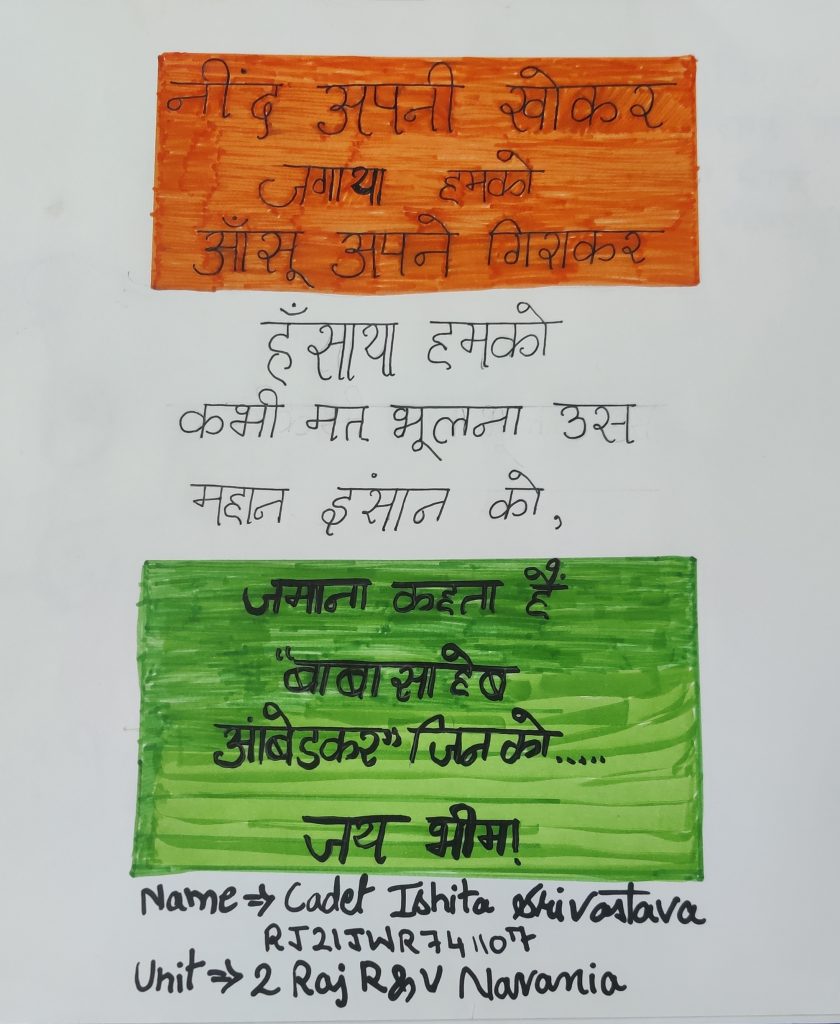 नींद अपनी खोकर
जगाया हमको
आँसू अपने गिराकर
हँसाया हमको
कभी मत भूलना उस
महान इंसान को,
जमाना कहता हैं
"बाबा साहेब
आंबेडकर" जिनको.....
जय भीम!
Name⇒ Cadet Ishita Srivastava
RJ21JWR741107
Unit⇒ 2 Raj R&V Navania